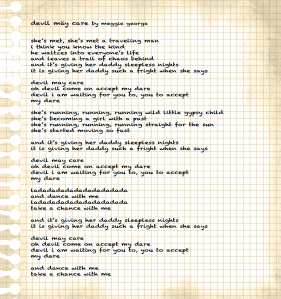 devil may care by maggie george
she's met, she's met a traveling man
i think you know the kind
he waltzes into everyone's life
and leaves a trail of chaos behind
and it's giving her daddy sleepless nights
it is giving her daddy such a fright when she says
devil may care
oh devil come on accept my dare
devil i am waiting for you to, you to accept
my dare
she's running, running, running wild little gypsy child
she's becoming a girl with a past
she's running, running, running straight for the sun
she's started moving so fast
and it's giving her daddy sleepless nights
it is giving her daddy such a fright when she says
devil may care
oh devil come on accept my dare
devil i am waiting for you to, you to accept
my dare
ladadadadadadadadadada
and dance with me
ladadadadadadadadadada
take a chance with me
and it's giving her daddy sleepless nights
it is giving her daddy such a fright when she says
devil may care
oh devil come on accept my dare
devil i am waiting for you to, you to accept
my dare
and dance with me
take a chance with me